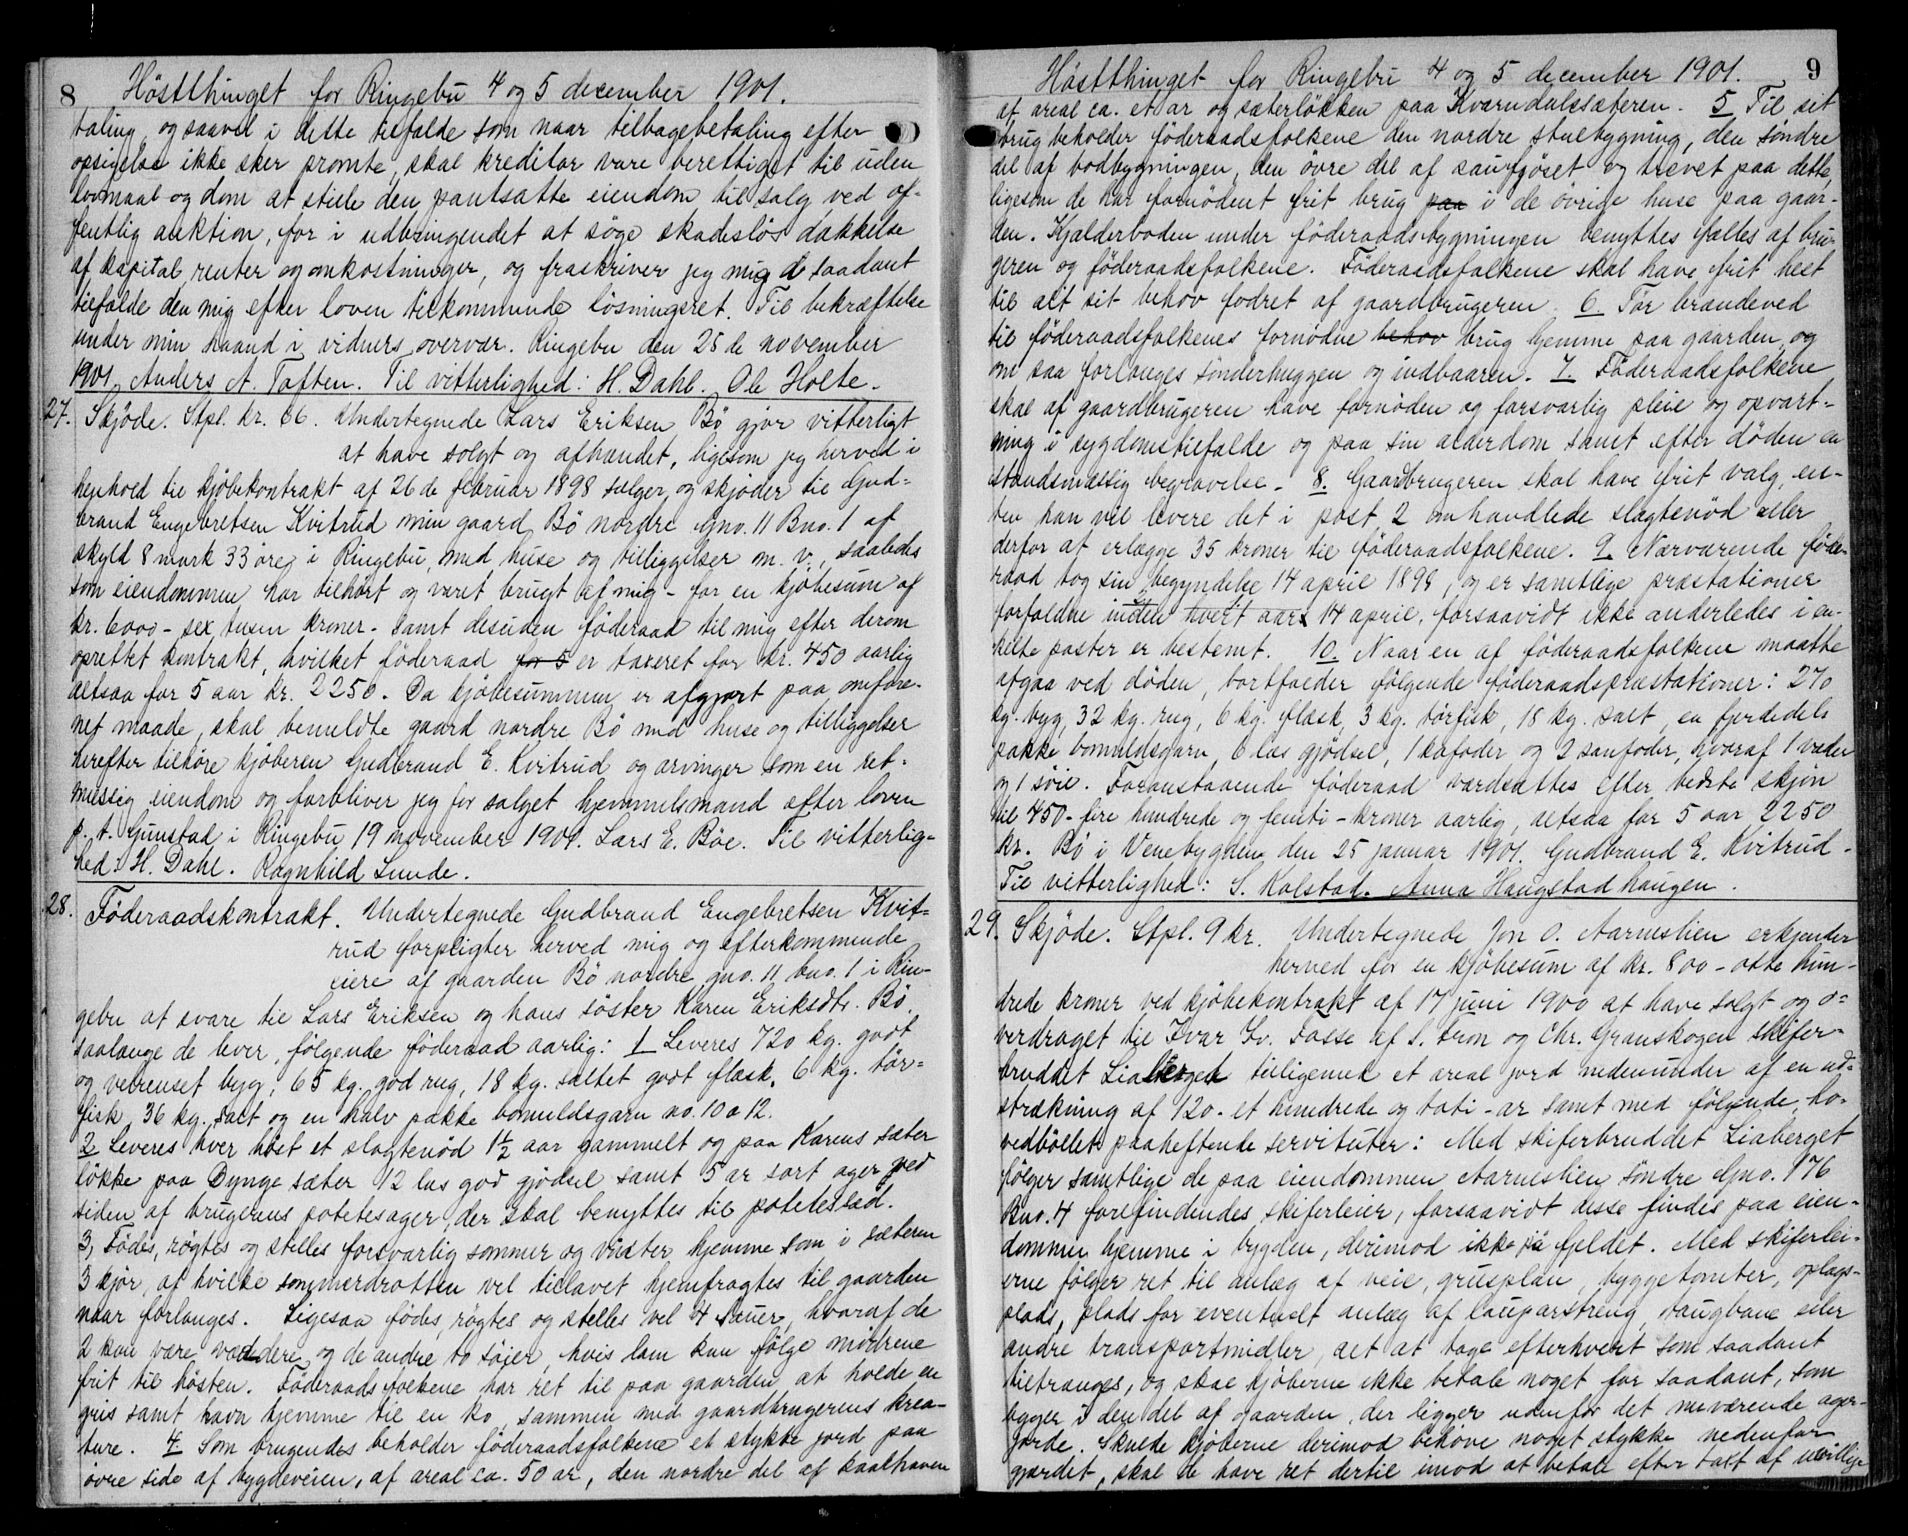 8 Höstthinget for Ringebu 4 og 5 december 1901.
taling, og saavel i dette tilfælde som naar tilbagebetaling efter
opsigelse ikke sker promte, skal kreditor være berettiget til uden
lovmaal og dom at stille den pantsatte eiendom til salg ved of-
fentlig auktion, for i udbringendet at søge skadesløs dækkelse
af kapital, renter og omkostninger, og fraskriver jeg mig i saadant
tilfælde den mig efter loven tilkommende løsningsret. Til bekræftelse
under min haand i vidners overvær. Ringebu den 25de november
1901 Anders A. Toften. Til vitterlighed: H. Dahl. Ole Holte.
27. Skjöde. Stpl. kr. 66. Undertegnede Lars Eriksen Bö gjør vitterligt
at have solgt og afhændet, ligesom jeg herved i
henhold til kjöbekontrakt af 26de februar 1898 sælger og skjöder til Gud-
brand Engebretsen Kvitrud min gaard Bö nordre Gno. 11 Bno. 1 af
skyld 8 mark 33 öre i Ringebu, med huse og tilliggelser m. v., saaledes
som eiendommen har tilhørt og været brugt af mig - for en kjöbesum af
kr. 6000 - sex tusen kroner - samt desuden föderaad til mig efter derom
oprettet kontrakt, hvilket föderaad for 5 er taxeret for kr. 450 aarlig
altsaa for 5 aar kr. 2250. Da kjöbesummen er afgjort paa omfore-
net maade, skal bemeldte gaard nordre Bö med huse og tilliggelser
herefter tilhøre kjöberen Gudbrand E. Kvitrud og arvinger som en ret-
mæssig eiendom og forbliver jeg for salget hjemmelsmand efter loven
p. t. Gunstad i Ringebu 19 november 1901. Lars E. Böe. Til vitterlig-
hed: H. Dahl. Ragnhild Lunde.
28. Föderaadskontrakt. Undertegnede Gudbrand Engebretsen Kvit-
rud forpligter herved mig og efterkommende
eiere af gaarden Bö nordre gno. 11 bno. 1 i Rin-
gebu at svare til Lars Eriksen og hans söster Karen Eriksdtr. Bö,
saalænge de lever, følgende föderaad aarlig: 1 Leveres 720 kg. godt
og velrenset byg, 65 kg. god rug, 18 kg. saltet godt flæsk, 6 kg. tör-
fisk, 36 kg. salt og en halv pakke bomuldsgarn no. 10 a 12.
2 Leveres hver höst et slagtenöd 1½ aar gammelt og paa Karens sæter
lökke paa Dynge sæter 12 læs god gjödsel samt 5 ar sort ager ved
siden af brugerens potetesager, der skal benyttes til potetestad.
3, Födes, røgtes og stelles forsvarlig sommer og vinter hjemme som i sæteren
3 kjör, af hvilke sommerdrotten vel tillavet hjemfragtes til gaarden
naar forlanges. Ligesaa fødes, røgtes og stelles vel 4 sauer, hvoraf de
2 kan være vædere og de andre to söier, hvis lam kan følge mødrene
frit til hösten. Föderaadsfolkene har ret til paa gaarden at holde en
gris samt havn hjemme til en ko, sammen med gaardbrugerens krea-
ture. 4 Som brugendes beholder föderaadsfolkene et stykke jord paa
övre side af bygdeveien, af areal ca. 50 ar, den nordre del af kaalhaven
Höstthinget for Ringebu 4 og 5 december 1901. 9
af areal ca. et ar og sæterlökken paa Kværndalssæteren. 5 Til sit
brug beholder föderaadsfolkene den nordre stuebygning, den söndre
del af bodbygningen, den övre del af saufjöset og trevet paa dette,
ligesom de har fornödent frit brug paa i de övrige huse paa gaar-
den. Kjælderboden under föderaadsbygningen benyttes fælles af bru-
geren og föderaadsfolkene. Föderaadsfolkene skal have frit hest
til alt sit behov fodret af gaardbrugeren. 6. Tør brændeved
til föderaadsfolkenes fornödne behov brug hjemme paa gaarden, og
om saa forlanges sönderhuggen og indbaaren. 7. Föderaadsfolkene
skal af gaardbrugeren have fornöden og forsvarlig pleie og opvart-
ning i sygdomstilfælde og paa sin alderdom samt efter döden en
standsmæssig begravelse. 8. Gaardbrugeren skal have frit valg, en-
ten han vil levere det i post 2 omhandlede slagtenöd eller
derfor at erlægge 35 kroner til föderaadsfolkene. 9. Nærværende föde-
raad tog sin begyndelse 14 april 1898, og er samtlige præstationer
forfaldne inden hvert aars 14 april, forsaavidt ikke anderledes i en-
kelte poster er bestemt. 10. Naar en af föderaadsfolkene maatte
afgaa ved döden, bortfalder følgende föderaadspræstationer: 270
kg. byg, 32 kg. rug, 6 kg. flæsk, 3 kg. törfisk, 18 kg. salt, en fjerdedels
pakke bomuldsgarn, 6 læs gjödsel, 1 kofoder og 2 saufoder, hvoraf 1 væder
og 1 söie. Foranstaaende föderaad værdsættes efter bedste skjön
til 450 - fire hundrede og femti - kroner aarlig, altsaa for 5 aar 2250
kr. Bö i Venebygden den 25 januar 1901. Gudbrand E. Kvitrud.
Til vitterlighed: S. Kolstad. Anna Haugstadhaugen.
29. Skjöde. Stpl. 9 kr. Undertegnede Jon O. Aarneslien erkjender
herved for en kjöbesum af kr. 800 - otte hun-
drede kroner ved kjöbekontrakt af 17 juni 1900 at have solgt og o-
verdraget til Ivar Iv. Fosse af S. Fron og Chr. Granskogen skifer-
bruddet Liaberget tilligemed et areal jord nedenunder af en ud-
strækning af 120 - et hundrede og toti - ar samt med følgende, ho-
vedböllet paaheftende servituter: Med skiferbruddet Liaberget
følger samtlige de paa eiendommen Aarneslien söndre Gno. 176
Bno. 4 forefindendes skiferleier, forsaavidt disse findes paa eien-
dommen hjemme i bygden, derimod ikke på fjeldet. Med skiferlei-
erne følger ret til anlæg af veie, grusplan, byggetomter, oplags-
plads, plads for eventuelt anlæg af lauparstreng, taugbane eller
andre transportmidler, alt at tage efterhvert som saadant
tiltrænges, og skal kjöberne ikke betale noget for saadant, som
ligger i den del af gaarden, der ligger udenfor det nuværende ager-
gjærde. Skulde kjöberne derimod behöve noget stykke nedenfor
gjærdet, skal de have ret dertil imod at betale efter takt af uvillige